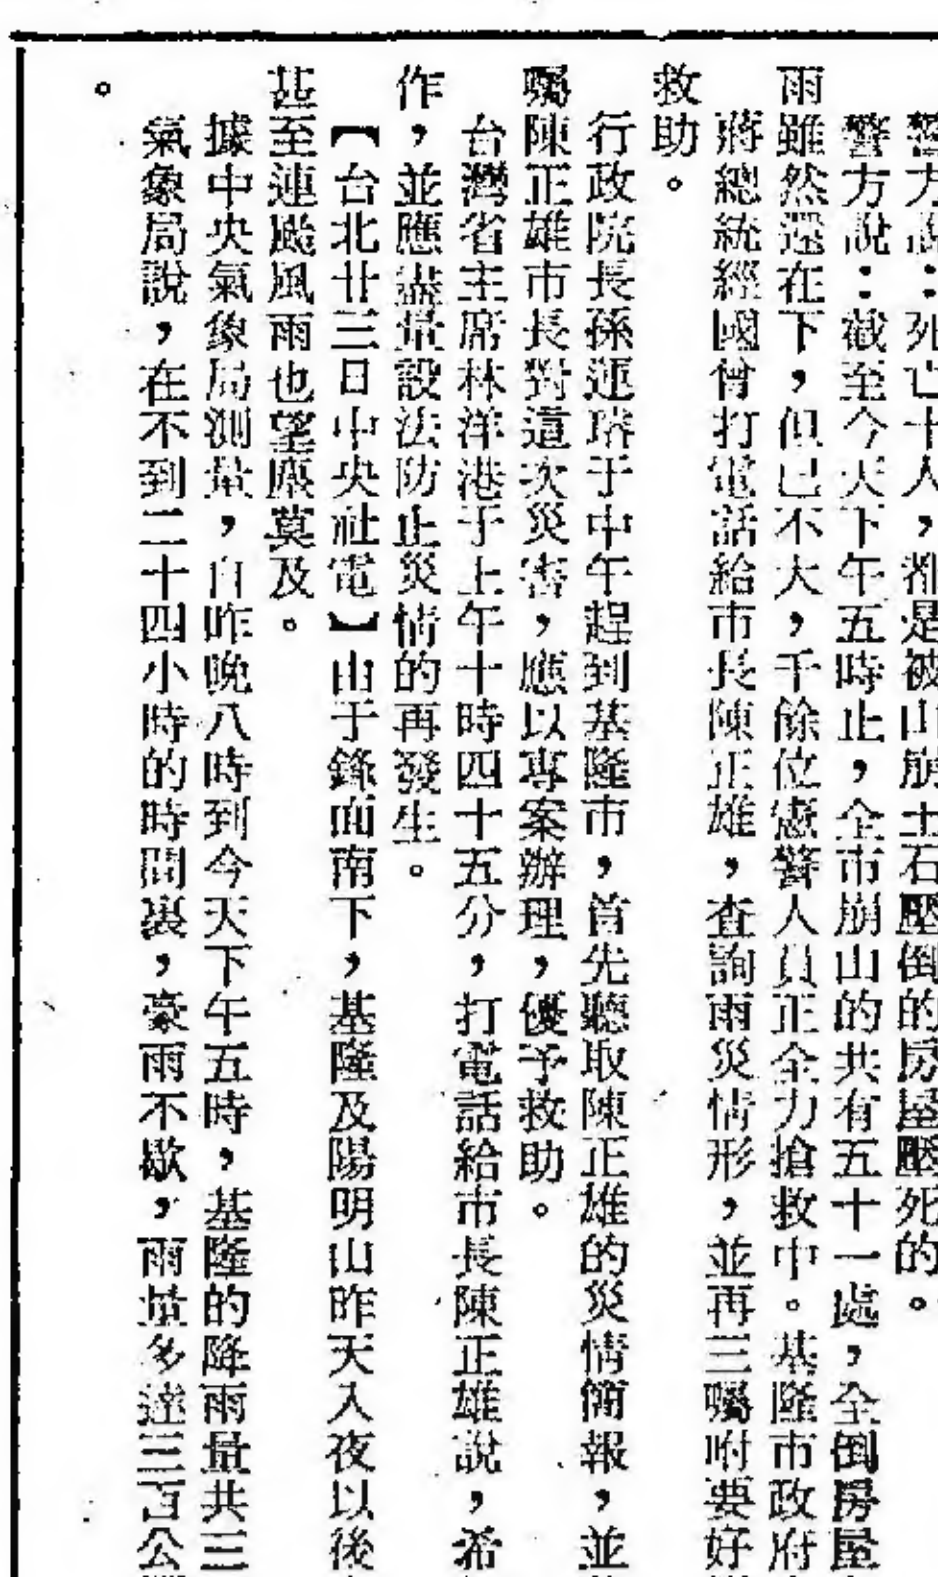 警方說：死亡十人，都是被山崩土石壓倒的房屋壓死的。
警方說：截至今天下午五時止，全市崩山的共有五十一處，全倒房屋
雨雖然還在下，但已不大，千餘位憲警人員正全力搶救中。基隆市政府
蔣總統經國曾打電話給市長陳正雄，查詢雨災情形，並再三囑咐要好
救助。
行政院長孫運璿于中午趕到基隆市，首先聽取陳正雄的災情簡報，並
囑陳正雄市長對這次災害，應以專案辦理，優予救助。
台灣省主席林洋港于上午十時四十五分，打電話給市長陳正雄說，希
作，並應盡量設法防止災情的再發生。
【台北廿三日中央社電】由于鋒面南下，基隆及陽明山昨天入夜以後
甚至連颱風雨也望塵莫及。
據中央氣象局測量，自昨晚八時到今天下午五時，基隆的降雨量共三
氣象局說，在不到二十四小時的時間裏，豪雨不歇，雨量多達三百公
。